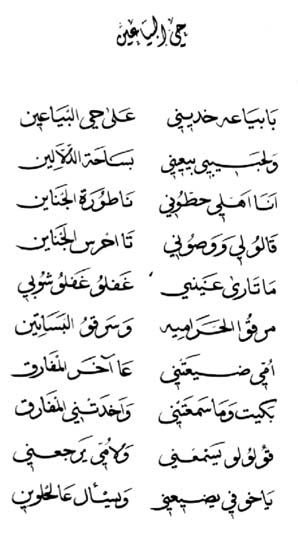 حي البياعين
يا بياعه خديني على حي البياعين
ولحبيبي بيعيني بساحة الدلالين
انا اهلي حطوني ناطورة الجناين
قالولي ووصوني تا احرس الجناين
ما تارى عينيي غفلو غفلو شوبي
مرقو الحراميه وسرقو البساتين
أمي ضيعتني عا آخر المفارق
بكيت وما سمعتني واخدتني المفارق
قولولو يسمعني ولأمي يرجعني
يا خوفي يضيعني ويسأل عالحلوين